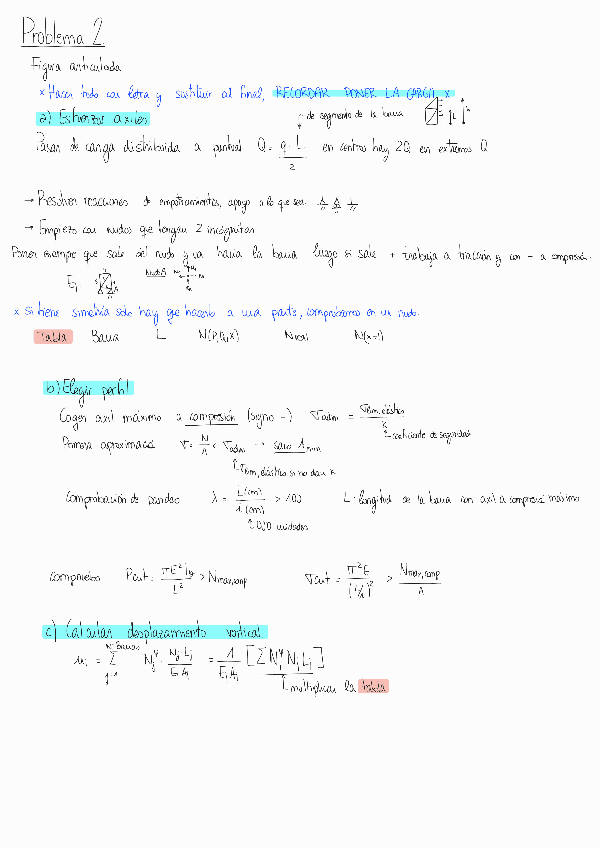 Problema 2.
Figura articulada
x Hacer todo con letra y sustituir al final, RECORDAR PONER LA CARGA X
a) Esfuerzos axiles
→ de segmento de la barra
Pasar de carga distribuida a puntual Q = q · L / 2 en centros hay 2Q en extremos Q
→ Resolver reacciones de empotramientos, apoyo o lo que sea
→ Empiezo con nudos que tengan 2 incógnitas
Poner siempre que sale del nudo y va hacia la barra luego si sale + trabaja a tracción y con - a compresión.
Ej Nudo A
x si tiene simetría solo hay que hacerlo a una parte, comprobamos en un nudo.
Tabla Barra L N(P,Q,X) Nreal N(x=1)
b) Elegir perfil
Coger axil máximo a compresión (signo -) σadm = σlim,elástico / K
↑ coeficiente de seguridad
Primera aproximación σ = N/A < σadm → saco Amin
↑ σlim,elástico si no dan K
Comprobación de pandeo λ = L(cm) / i(cm) > 100 L = longitud de la barra con axil a compresión máximo
↑ OJO unidades
compruebo Pcrit = πE²Iy / L² > Nmax,comp σcrit = π²E / (L/i)² > Nmax,comp / A
c) Calcular desplazamiento vertical
ui = Σ Njᵠ · Nj Lj / Ej Aj = 1 / Ej Aj [ΣNjᵠ Nj Lj]
nº barras
j=1
↑ multiplicar la tabla